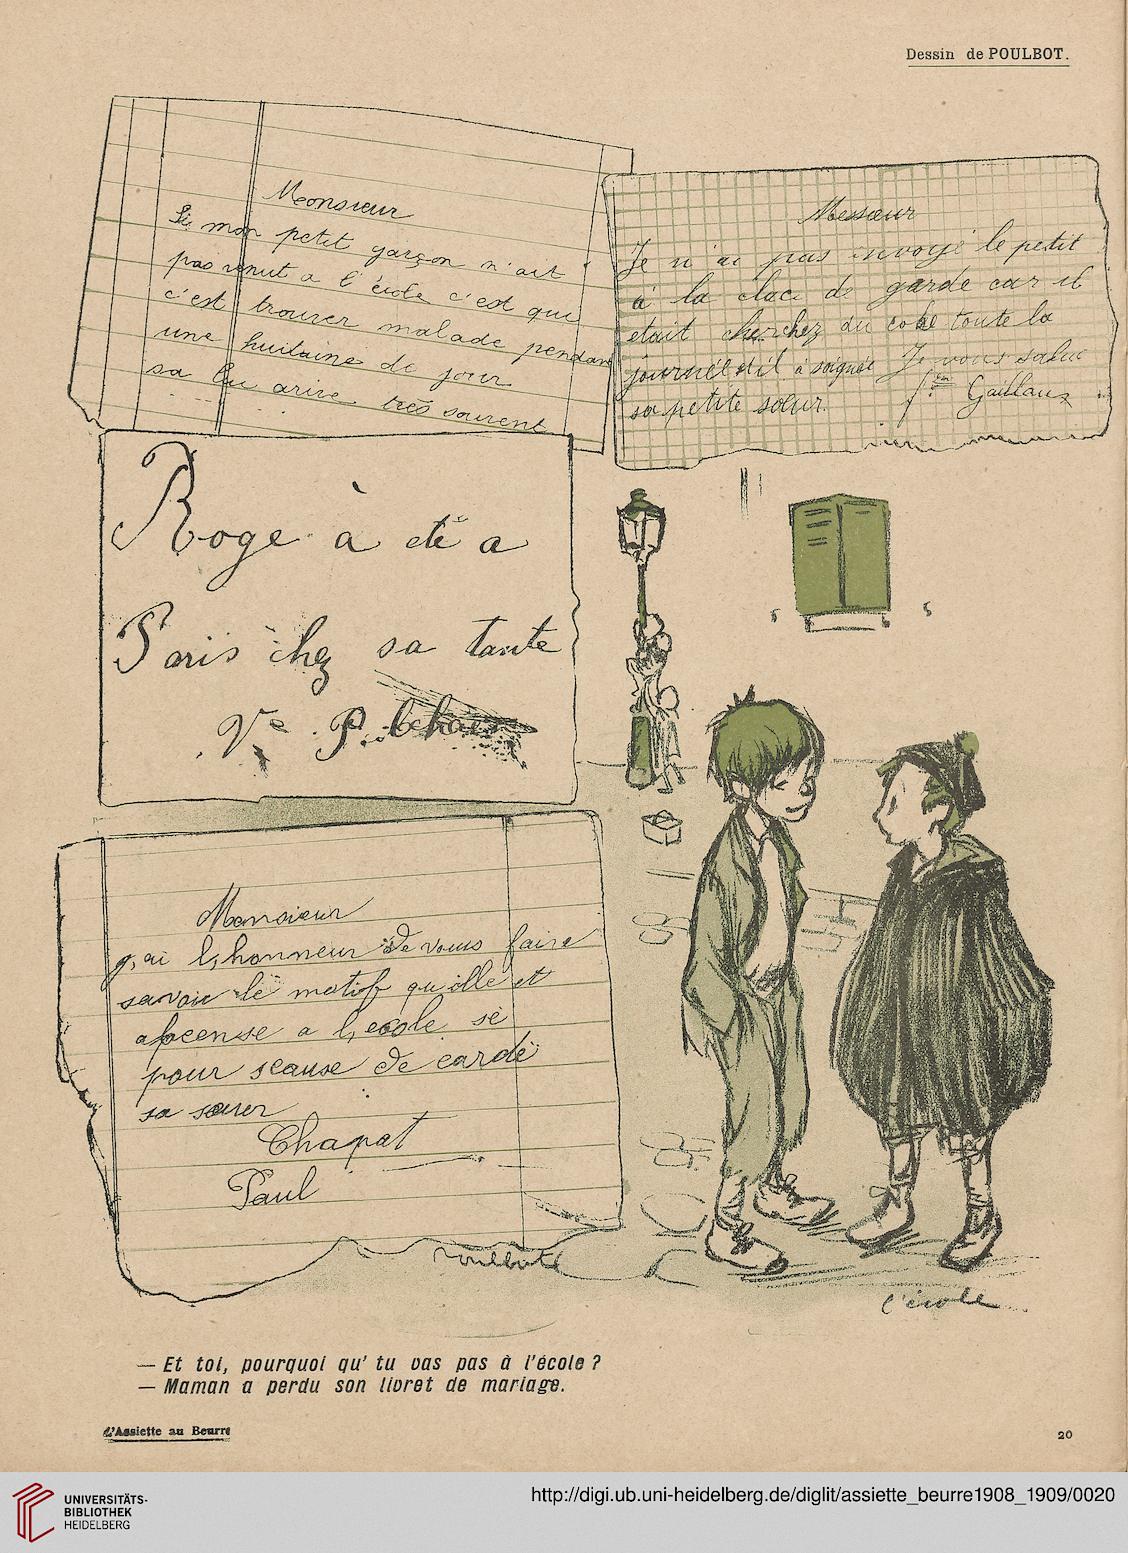 Dessin de POULBOT.
Meonsieur
Si mon petit garçon n'ait
pas venut a l'école c'est que
c'est trouver malade pendant
une huitaine de jour
sa lui arive très souvent
Messieur
Je n'ai pas envoyé le petit
à la clace de garde car il
etait cherchez du coke toute la
journée et il a soignée Je vous salue
sa petite sœur. Gaillaux
Roge à été a
Paris chez sa tante
Vve P.
Monsieur
j,ai l,honneur de vous faire
savoir le motif qu'ille et
abcense a l,ecole se
pour scause de cardé
sa sœur
Chapat
Paul
Poulbot
l'école
— Et toi, pourquoi qu' tu vas pas à l'école ?
— Maman a perdu son livret de mariage.
L'Assiette au Beurre
20
UNIVERSITÄTS-
BIBLIOTHEK
HEIDELBERG
http://digi.ub.uni-heidelberg.de/diglit/assiette_beurre1908_1909/0020